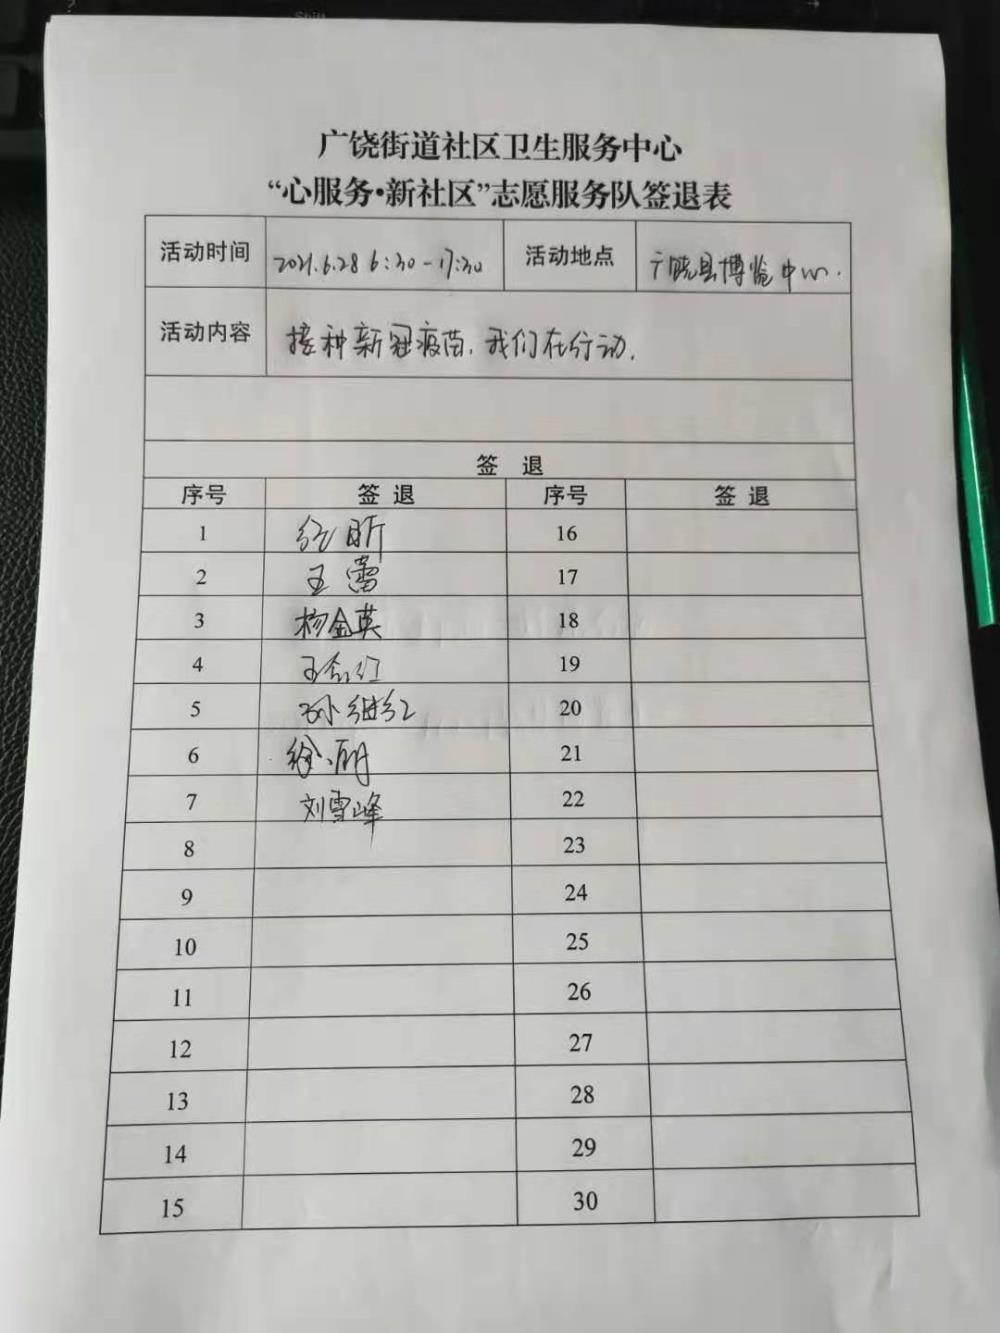 广饶街道社区卫生服务中心
“心服务·新社区”志愿服务队签退表
活动时间 2021.6.28 6:30-17:30 活动地点 广饶县博览中心.
活动内容 接种新冠疫苗,我们在行动.
签 退
序号 签 退 序号 签 退
1 昕 16
2 王蕾 17
3 杨金英 18
4 王红 19
5 孙继红 20
6 徐丽 21
7 刘雪峰 22
8 23
9 24
10 25
11 26
12 27
13 28
14 29
15 30